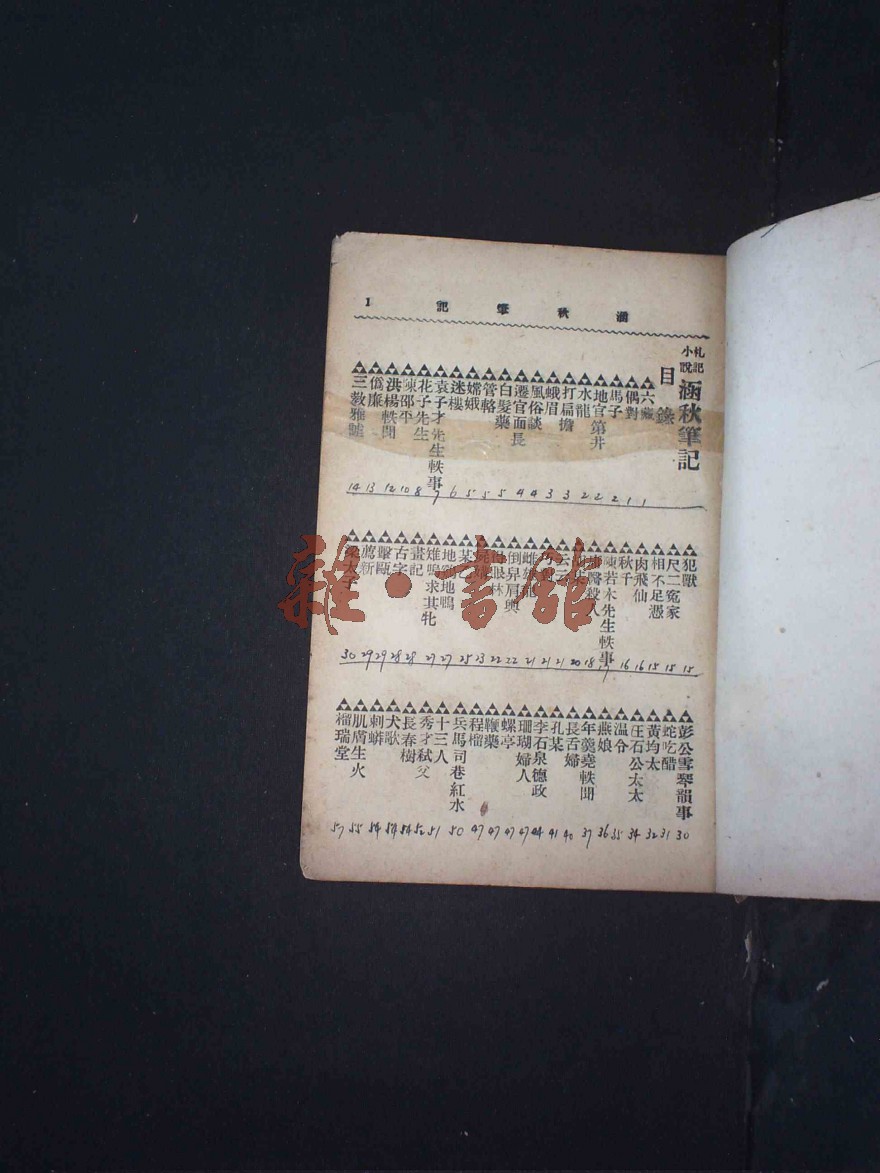 涵秋筆記 1
札記小說 涵秋筆記
目錄
六 1
偶對 1
馬子 2
地官第井 2
水龍 2
打扁擔 3
蛾眉 3
風俗談 4
遷官面長 4
白髮藥 5
管輅 5
嫦娥 5
迷樓 6
袁子才先生軼事 7
花子先生 8
陳邵平 10
洪楊軼聞 12
僞廉 13
三教雅謔 14
犯獸 15
尺二冤家 15
相不足憑 15
肉飛仙 16
秋千 16
陳若木先生軼事 17
醫殺人 18
20
21
21
雌雄 21
倒舁肩輿 22
眼林 22
23
某乙 25
地鷄地鴨 27
雉鳴求其牝 27
畫記 28
古字 28
擊甌 29
薦新 29
梁太子 30
彭公雪琴韻事 30
蛇吃醋 31
黃均太 32
王石公太太 34
温令 35
燕娘 36
年羹堯軼聞 37
長舌婦 40
孔某 41
李石泉德政 44
珊瑚婦人 47
螺亭 47
鞭藥 47
程榴 47
兵馬司巷紅水 50
十三人 51
秀才弒父 52
長春樹 54
犬歌 54
刺蟒 54
肌膚生火 55
瑞堂 57
雜·書館